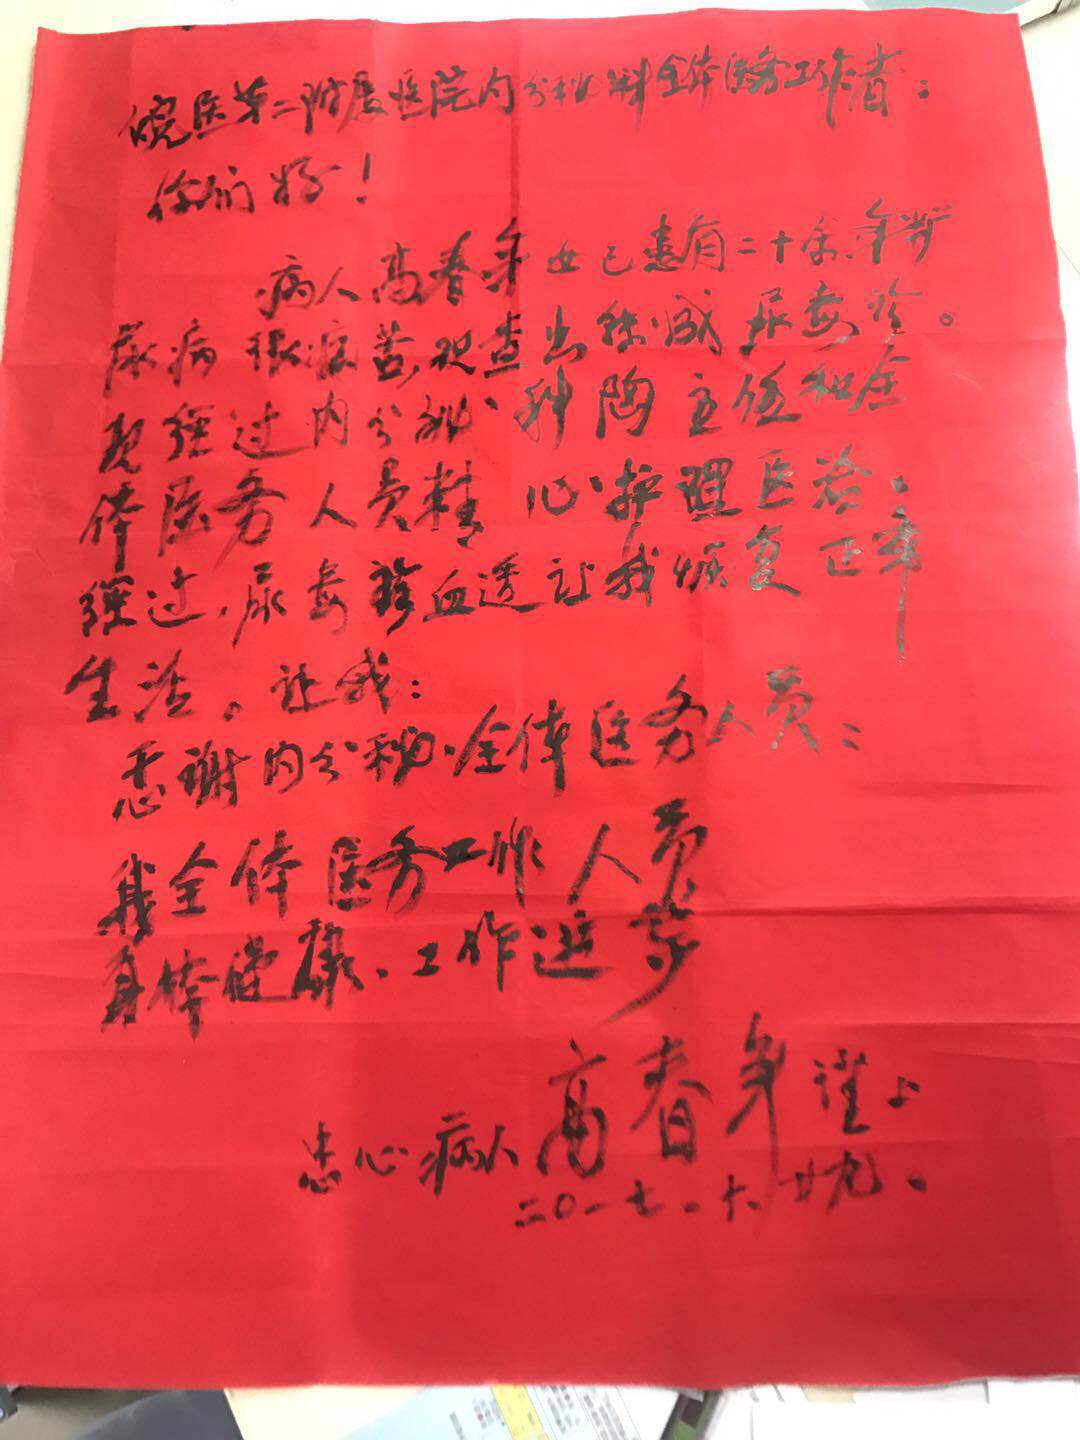 皖医第二附属医院内分秘科全体医务工作者：
你们好！
病人高春年女已患有二十余年
尿病很痛苦，查出 尿毒
现经过内分秘、科陶主任和全
体医务人员精心护理医治。
经过，尿毒 血透让我恢复正常
生活。让我：
感谢内分秘、全体医务人员：
我全体医务工作人员
身体健康、工作进步
忠心病人高春年谨上
二〇一七.十.廿九.